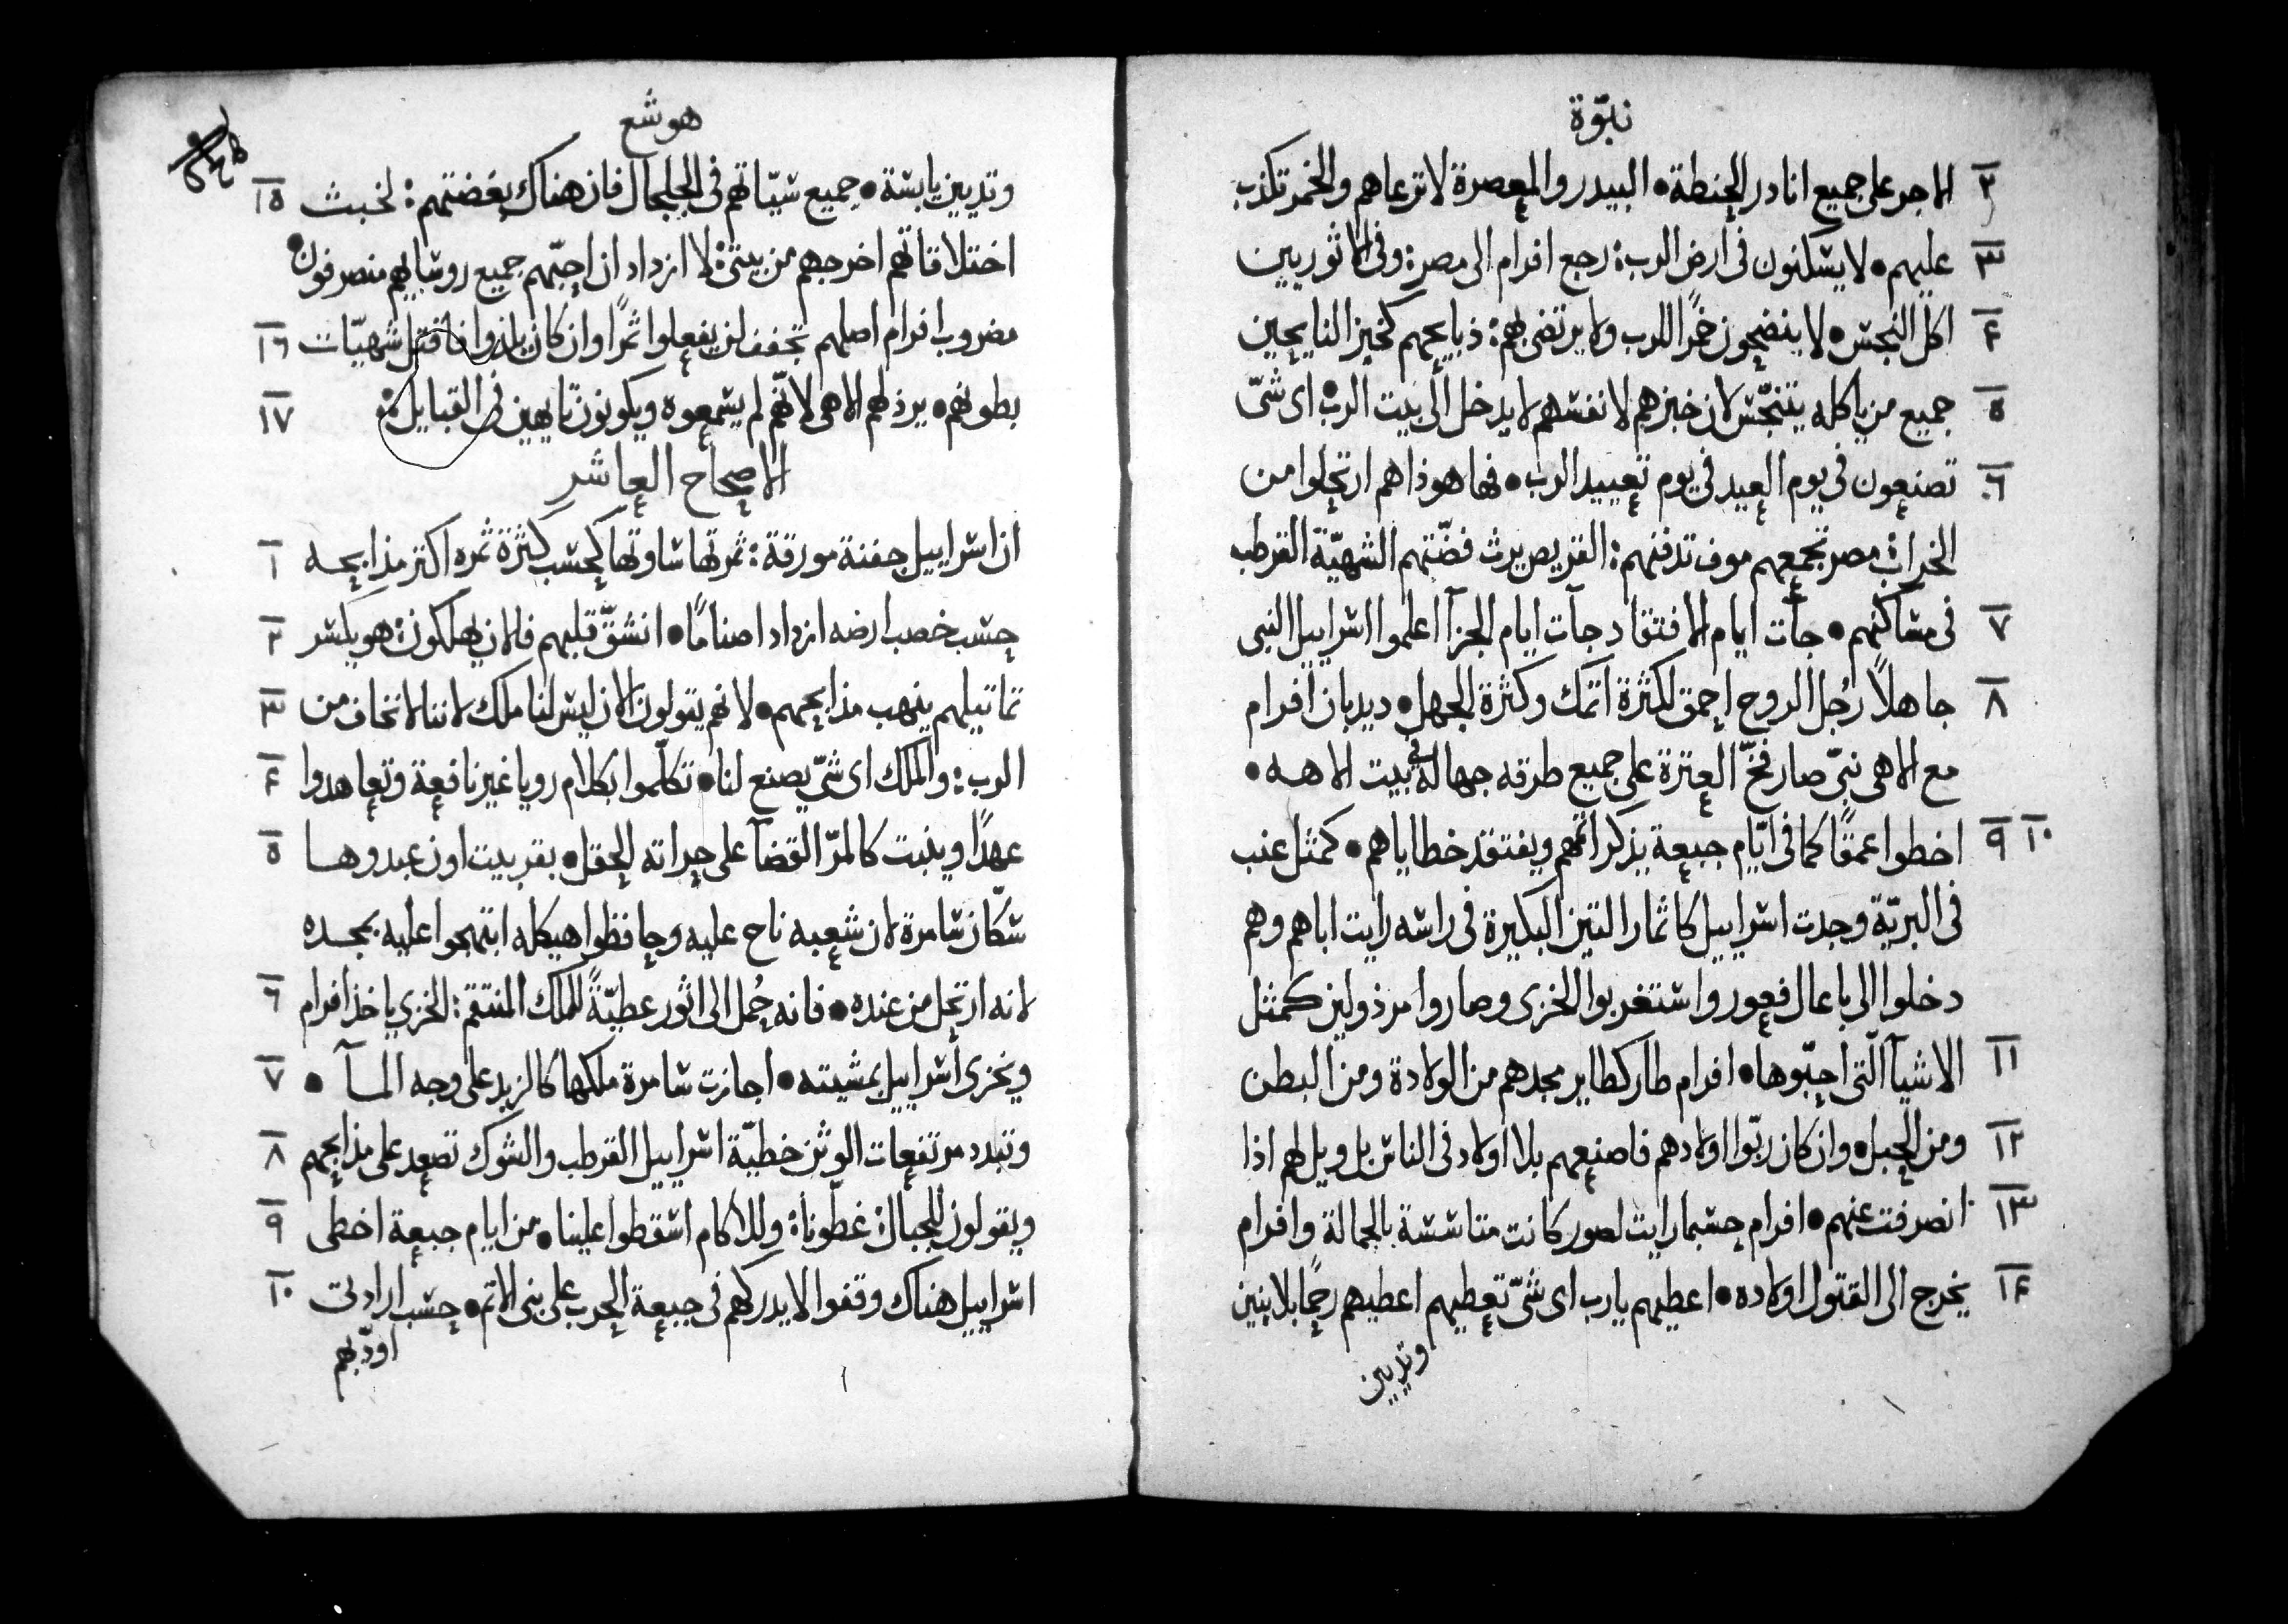 نبّوة
٢ الاجر على جميع انادر الحنطة • البيدر والمعصرة لا ترعاهم والخمر تكذب
٣ عليهم • لا يسكنون فى ارض الرب : رجع افرام الى مصر : وفى الاثوريين
۴ اكل النجس • لا ينضحون خمرًا للرب ولا يرتضى بهم : ذبايحهم كخبز النايحين
٥ جميع من ياكله يتنجّس لان خبزهم لانفسهم لا يدخل الى بيت الرب • اى شىّ
٦ تصنعون فى يوم العيد فى يوم تعييد الرب • فها هوذا هم ارتحلوا من
الخراب : مصر تجمعهم موف تدفنهم : القريص يرث فضّتهم الشهيّة القرطب
٧ فى مساكنهم • جآت ايام الافتقاد جآت ايام الجزآ اعلموا اسراييل النبى
٨ جاهلاً رجُل الروح احمق لكثرة اثمك وكثرة الجهل • ديدبان افرام
مع الاهى نبىّ صار فخّ العثرة على جميع طرقه جهالة فى بيت الاهه •
٩ ١٠ اخطوا عمقًا كما فى ايّام جبعة يذكر اثمهم ويفتقد خطاياهم • كمثل عنب
فى البريّة وجدت اسراييل كاثمار التين البكيرة فى راسه رايت اباهم وهم
دخلوا الى باعال فعور واستغربوا للخزى وصاروا مرذولين كمثل
١١ الاشيآ الّتى احبّوها • افرام طار كطاير مجدهم من الولادة ومن البطن
١٢ ومن الحبل • وان كان ربّوا اولادهم فاصنعهم بلا اولاد فى الناس بل ويل لهم اذا
١٣ انصرفت عنهم • افرام حسبما رايت لصور كانت متاسسة بالجمالة وافرام
١۴ يخرج الى القتول اولاده • اعطيهم يا رب اى شىّ تعطيهم اعطيهم رحمًا بلا بنين
وثديين
هوشع
وثديين يابسة • جميع سيّاتهم فى الجلجال فان هناك بغضتهم : لخبث ١٥
اختلاقاتهم اخرجهم من بيتى : لا ازداد ان احبّهم جميع روسايهم منصرفون •
مضروب افرام اصلهم تجفف لن يفعلوا ثمرًا وان كان يلدوا فاقتل شهيّات ١٦
بطونهم • يرذلهم الاهى لانّهم لم يسمعوه ويكونون تايهين فى القبايل : ١٧
الاصحاح العاشر
ان اسراييل جفنة مورقة : ثمرتها ساوتها كحسب كثرة ثمره اكثر مذابحه ١
حسب خصب ارضه ازداد اصنامًا • انشقّ قلبهم فالان يهلكون : هو يكسر ٢
تماثيلهم ينهب مذابحهم • لانهم يقولون الان ليس لنا ملك لاننا لا نخاف من ٣
الرب : والملك اى شىّ يصنع لنا • تكلّموا بكلام رويا غير نافعة وتعاهدوا ۴
عهدًا وينبت كالمرّ القضآ على حراثه الحقل • بقر بيت اون عبدوها ٥
سكّان سامرة لان شعبه ناح عليه وحافظوا هيكله ابتهجوا عليه بمجده
لانه ارتحل من عنده • فانه حُمل الى اثور عطيّةً للملك المنتقم : الخزى ياخذ افرام ٦
ويخزى اسراييل بمشيته • اجازت سامرة ملكها كالزبد على وجه المآ • ٧
وتبدد مرتفعات الوثن خطيّة اسراييل القرطب والشوك تصعد على مذابحهم ٨
ويقولون للجبال : غطّونا : وللاكام اسقطوا علينا • من ايام جبعة اخطى ٩
اسراييل هناك وقفوا لا يدركهم فى جبعة الحرب على بنى الاثم • حسب ارادتى ١٠
اودّبهم